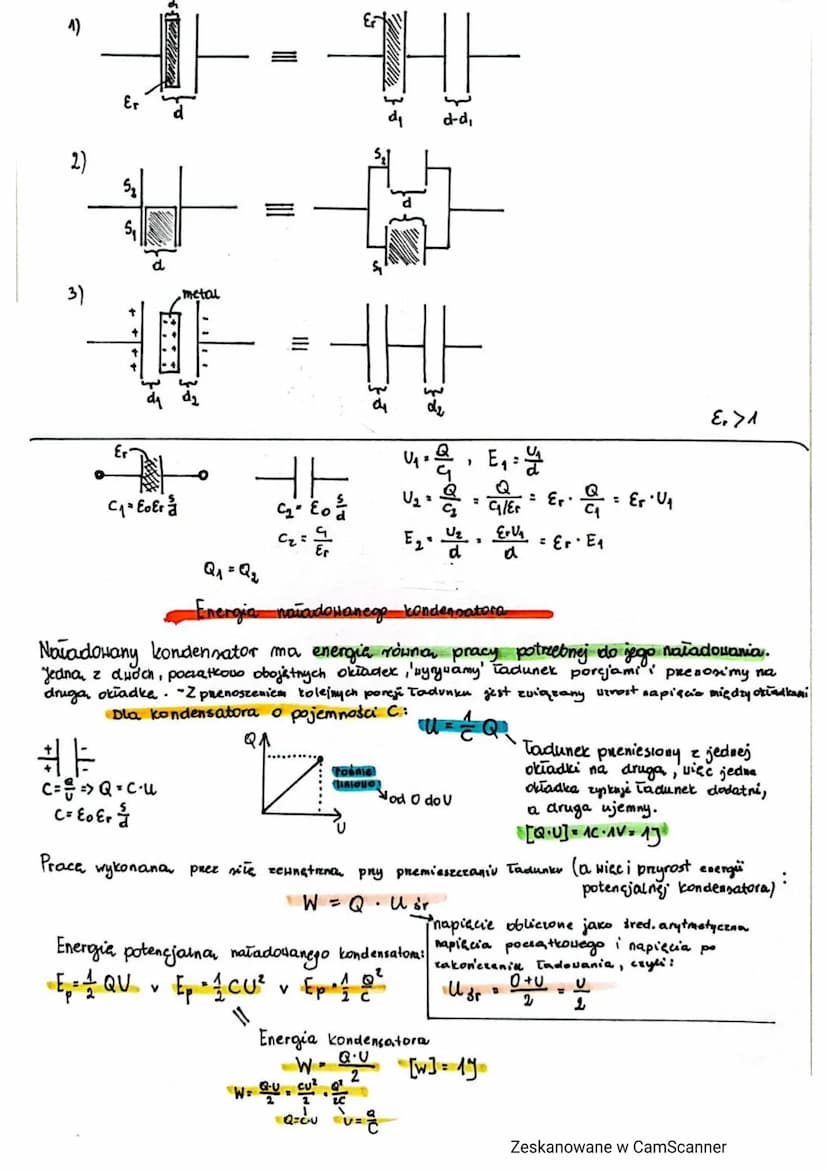 1)
d₁
εr
d
≡
εr
d₁
d-d₁
2)
S₂
S₁
d
≡
S₂
d
S₁
3)
metal
+ + + +
- + - + - + - +
- - - -
d₁ d₂
≡
d₁ d₂
εr >1
εr
C₁ = ε₀εr S/d
C₂ = ε₀ S/d
C₂ = C₁/εr
Q₁ = Q₂
U₁ = Q/C₁ , E₁ = U₁/d
U₂ = Q/C₂ = Q/(C₁/εr) = εr · Q/C₁ = εr · U₁
E₂ = U₂/d = εrU₁/d = εr · E₁
Energia naładowanego kondensatora
Naładowany kondensator ma energię równą pracy potrzebnej do jego naładowania.
Jedną z dwóch, początkowo obojętnych okładek, 'wyrywamy' ładunek porcjami i przenosimy na
drugą okładkę. -Z przenoszeniem kolejnych porcji ładunku jest związany wzrost napięcia między okładkami
Dla kondensatora o pojemności C:
U = 1/C Q
Ładunek przeniesiony z jednej
okładki na drugą, więc jedna
okładka zyskuje ładunek dodatni,
a druga ujemny.
[Q·U] = 1C·1V = 1J
+ -
+ -
C = Q/U => Q = C·U
C = ε₀εr S/d
Q
U
rośnie
liniowo
od 0 do U
Praca wykonana przez siłę zewnętrzną przy przemieszczaniu ładunku (a więc i przyrost energii
potencjalnej kondensatora) :
W = Q · U śr
napięcie obliczone jako śred. arytmetyczna
napięcia początkowego i napięcia po
zakończeniu ładowania, czyli:
U śr = 0+U/2 = U/2
Energia potencjalna naładowanego kondensatora:
Ep = 1/2 QU v Ep = 1/2 CU² v Ep = 1/2 Q²/C
=
Energia kondensatora
W = Q·U/2 [W] = 1J
W = Q·U/2 = CU²/2 = Q²/2C
Q=C·U U = Q/C
Zeskanowane w CamScanner